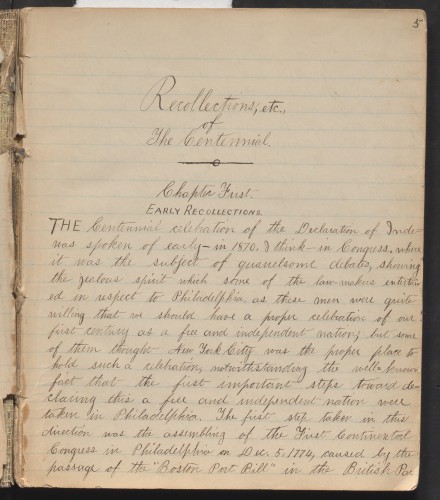 5
Recollections, etc.,
of
The Centennial.
Chapter First.
EARLY RECOLLECTIONS.
THE Centennial celebration of the Declaration of Inde=
was spoken of early – in 1870, I think – in Congress, where
it was the subject of quarrelsome debates, showing
the jealous spirit which some of the law-makers entertain
ed in respect to Philadelphia, as these men were quite
willing that we should have a proper celebration of our
first century as a free and independent nation; but some
of them thought New York City was the proper place to
hold such a celebration, notwithstanding the well-known
fact that the first important steps toward de-
claring this a free and independent nation were
taken in Philadelphia. The first step taken in this
direction was the assembling of the First Continental
Congress in Philadelphia on Dec. 5, 1774, caused by the
passage of the "Boston Port Bill" in the British Par